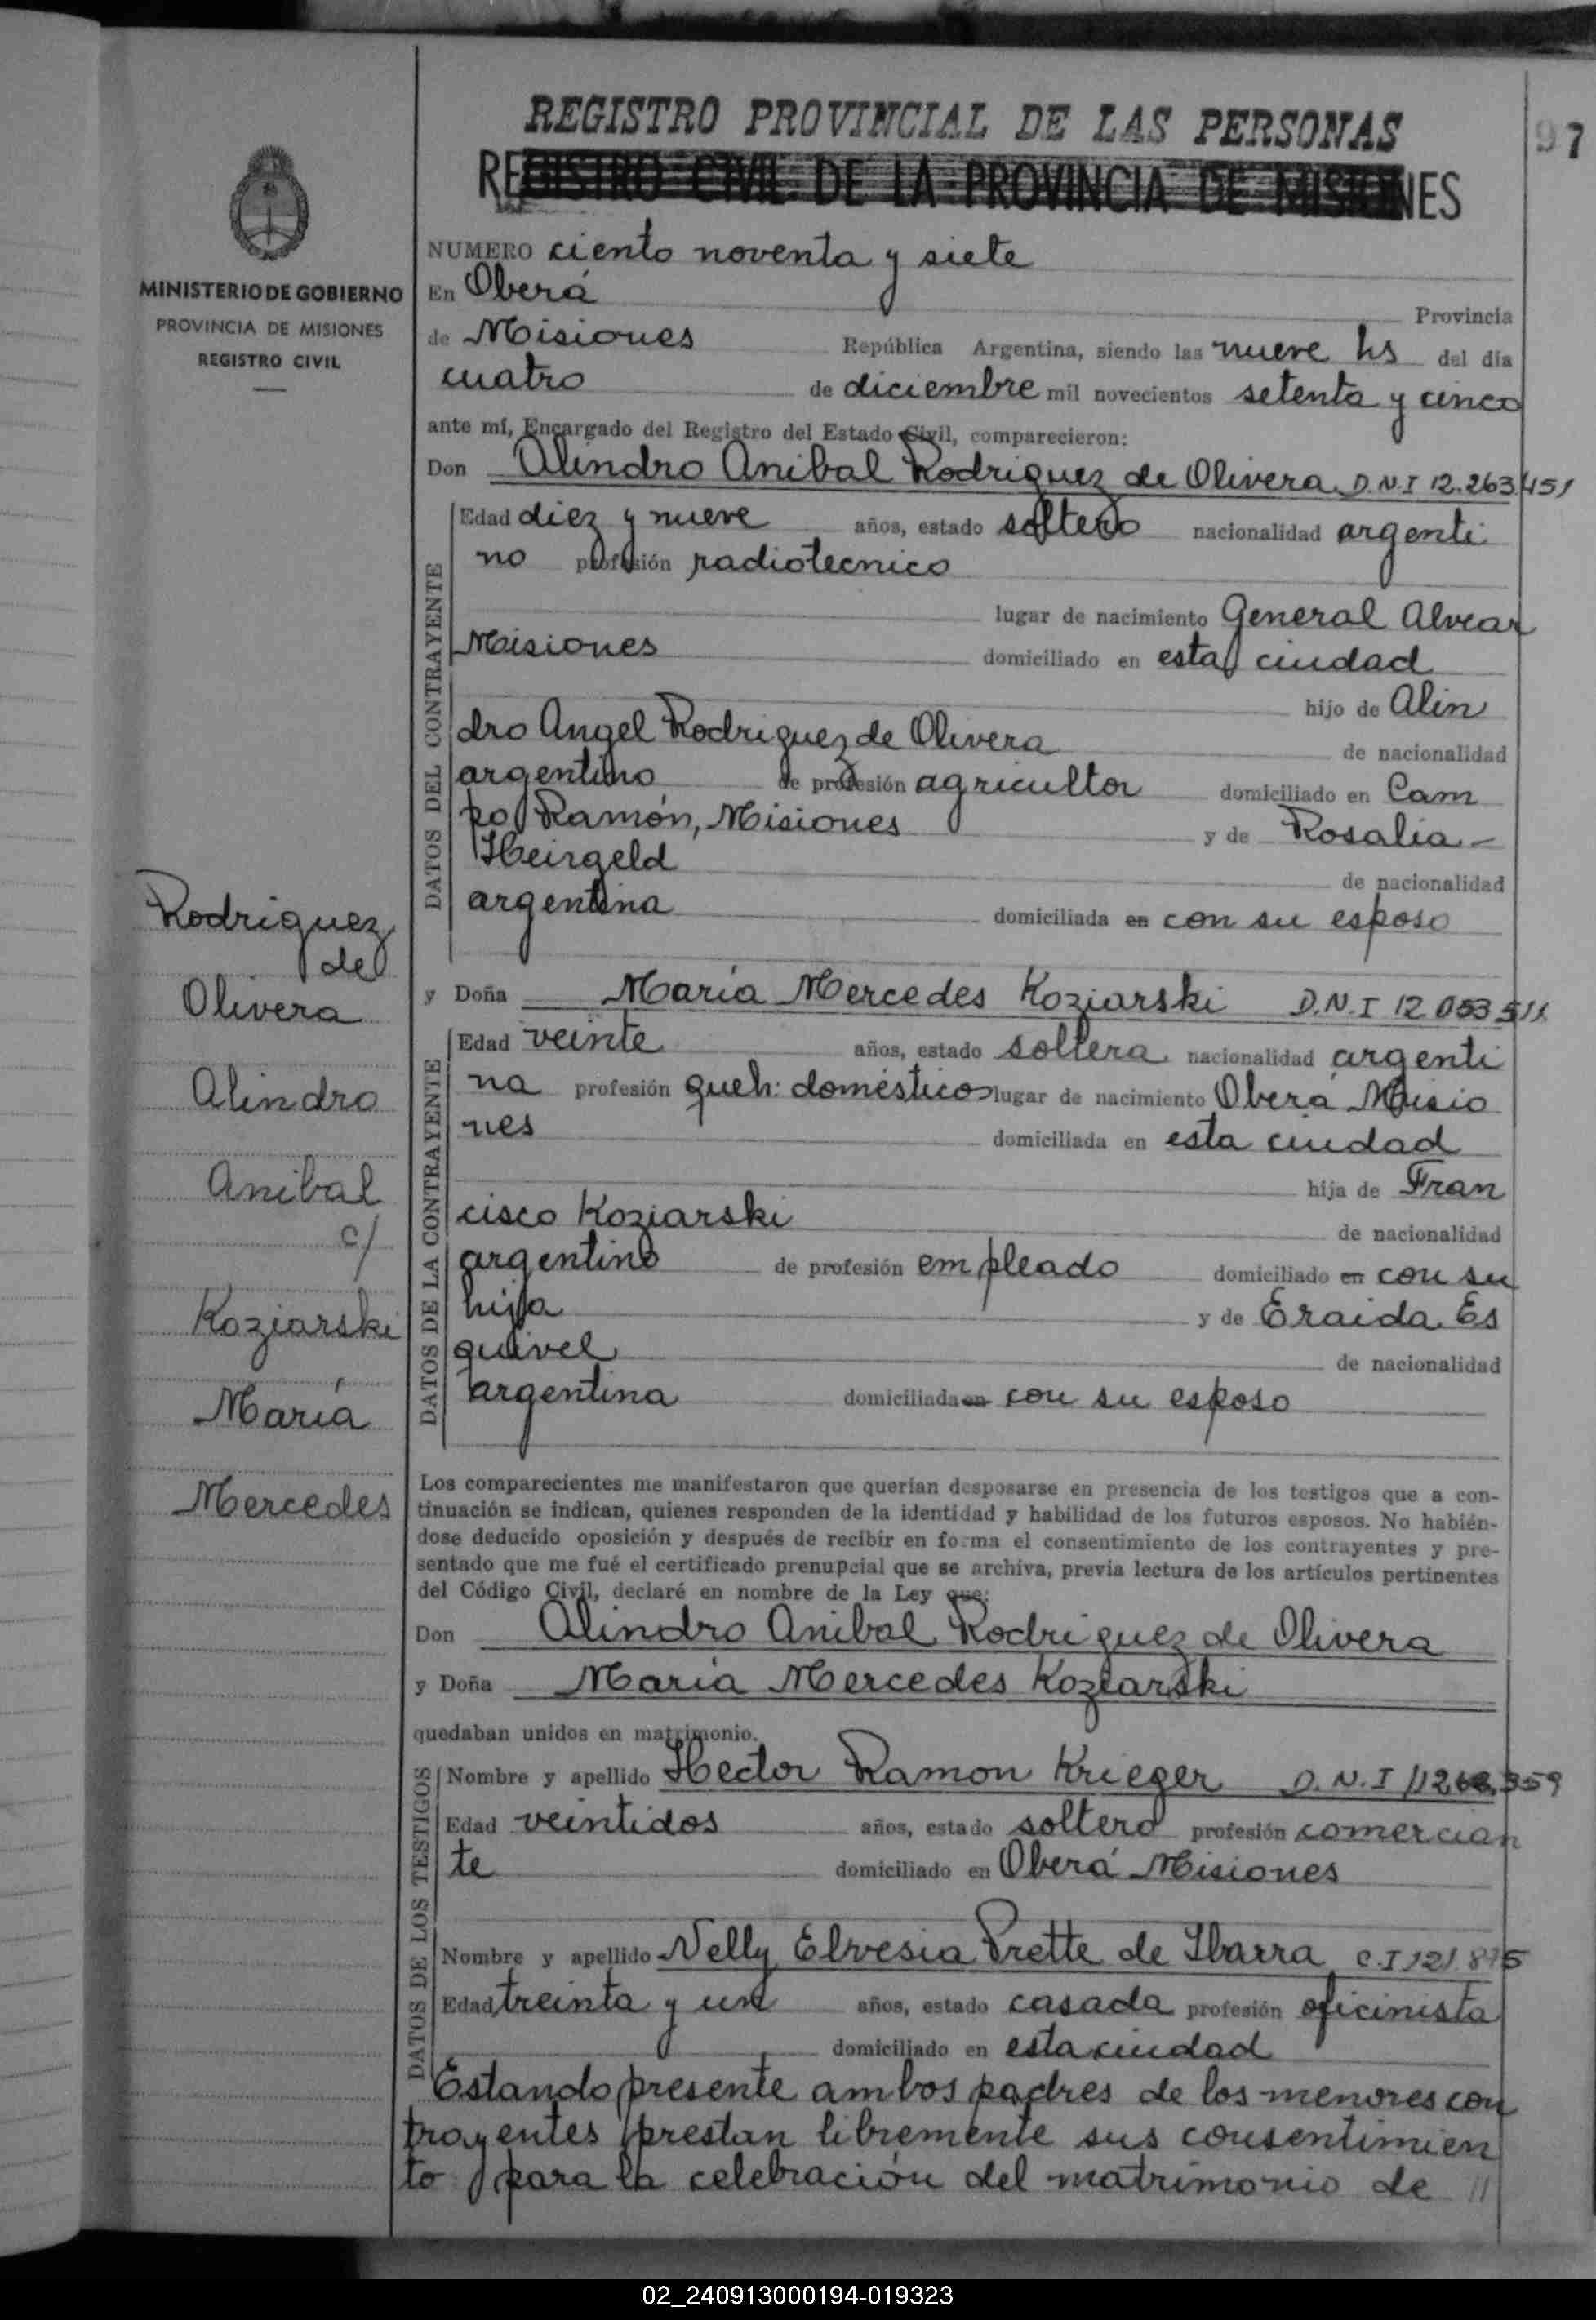 REGISTRO PROVINCIAL DE LAS PERSONAS
97
REGISTRO CIVIL DE LA PROVINCIA DE MISIONES
MINISTERIO DE GOBIERNO
PROVINCIA DE MISIONES
REGISTRO CIVIL
NUMERO ciento noventa y siete
En Oberá Provincia
de Misiones República Argentina, siendo las nueve hs del día
cuatro de diciembre mil novecientos setenta y cinco
ante mí, Encargado del Registro del Estado Civil, comparecieron:
Don Alindro Anibal Rodriguez de Olivera D.N.I 12.263.451
DATOS DEL CONTRAYENTE
Edad diez y nueve años, estado soltero nacionalidad argenti
no profesión radiotecnico
lugar de nacimiento General Alvear
Misiones domiciliado en esta ciudad
hijo de Alin
dro Angel Rodriguez de Olivera de nacionalidad
argentino de profesión agricultor domiciliado en Cam
po Ramón, Misiones y de Rosalia -
Heirgeld de nacionalidad
argentina domiciliada en con su esposo
y Doña María Mercedes Koziarski D.N.I 12.053.511
DATOS DE LA CONTRAYENTE
Edad veinte años, estado soltera nacionalidad argenti
na profesión queh: domésticos lugar de nacimiento Oberá Misio
nes domiciliada en esta ciudad
hija de Fran
cisco Koziarski de nacionalidad
argentino de profesión empleado domiciliado en con su
hija y de Eraida Es
quivel de nacionalidad
argentina domiciliada en con su esposo
Rodriguez
de
Olivera
Alindro
Anibal
c/
Koziarski
María
Mercedes
Los comparecientes me manifestaron que querían desposarse en presencia de los testigos que a con-
tinuación se indican, quienes responden de la identidad y habilidad de los futuros esposos. No habién-
dose deducido oposición y después de recibir en forma el consentimiento de los contrayentes y pre-
sentado que me fué el certificado prenupcial que se archiva, previa lectura de los artículos pertinentes
del Código Civil, declaré en nombre de la Ley que:
Don Alindro Anibal Rodriguez de Olivera
y Doña María Mercedes Koziarski
quedaban unidos en matrimonio.
DATOS DE LOS TESTIGOS
Nombre y apellido Hector Ramon Krieger D.N.I
Edad veintidos años, estado soltero profesión comercian
te domiciliado en Oberá Misiones
Nombre y apellido Nelly Elvesia Prette de Ibarra C.I 121.875
Edad treinta y un años, estado casada profesión oficinista
domiciliado en esta ciudad
Estando presente ambos padres de los menores con
trayentes prestan libremente sus consentimien
to para la celebración del matrimonio de //
02_240913000194-019323